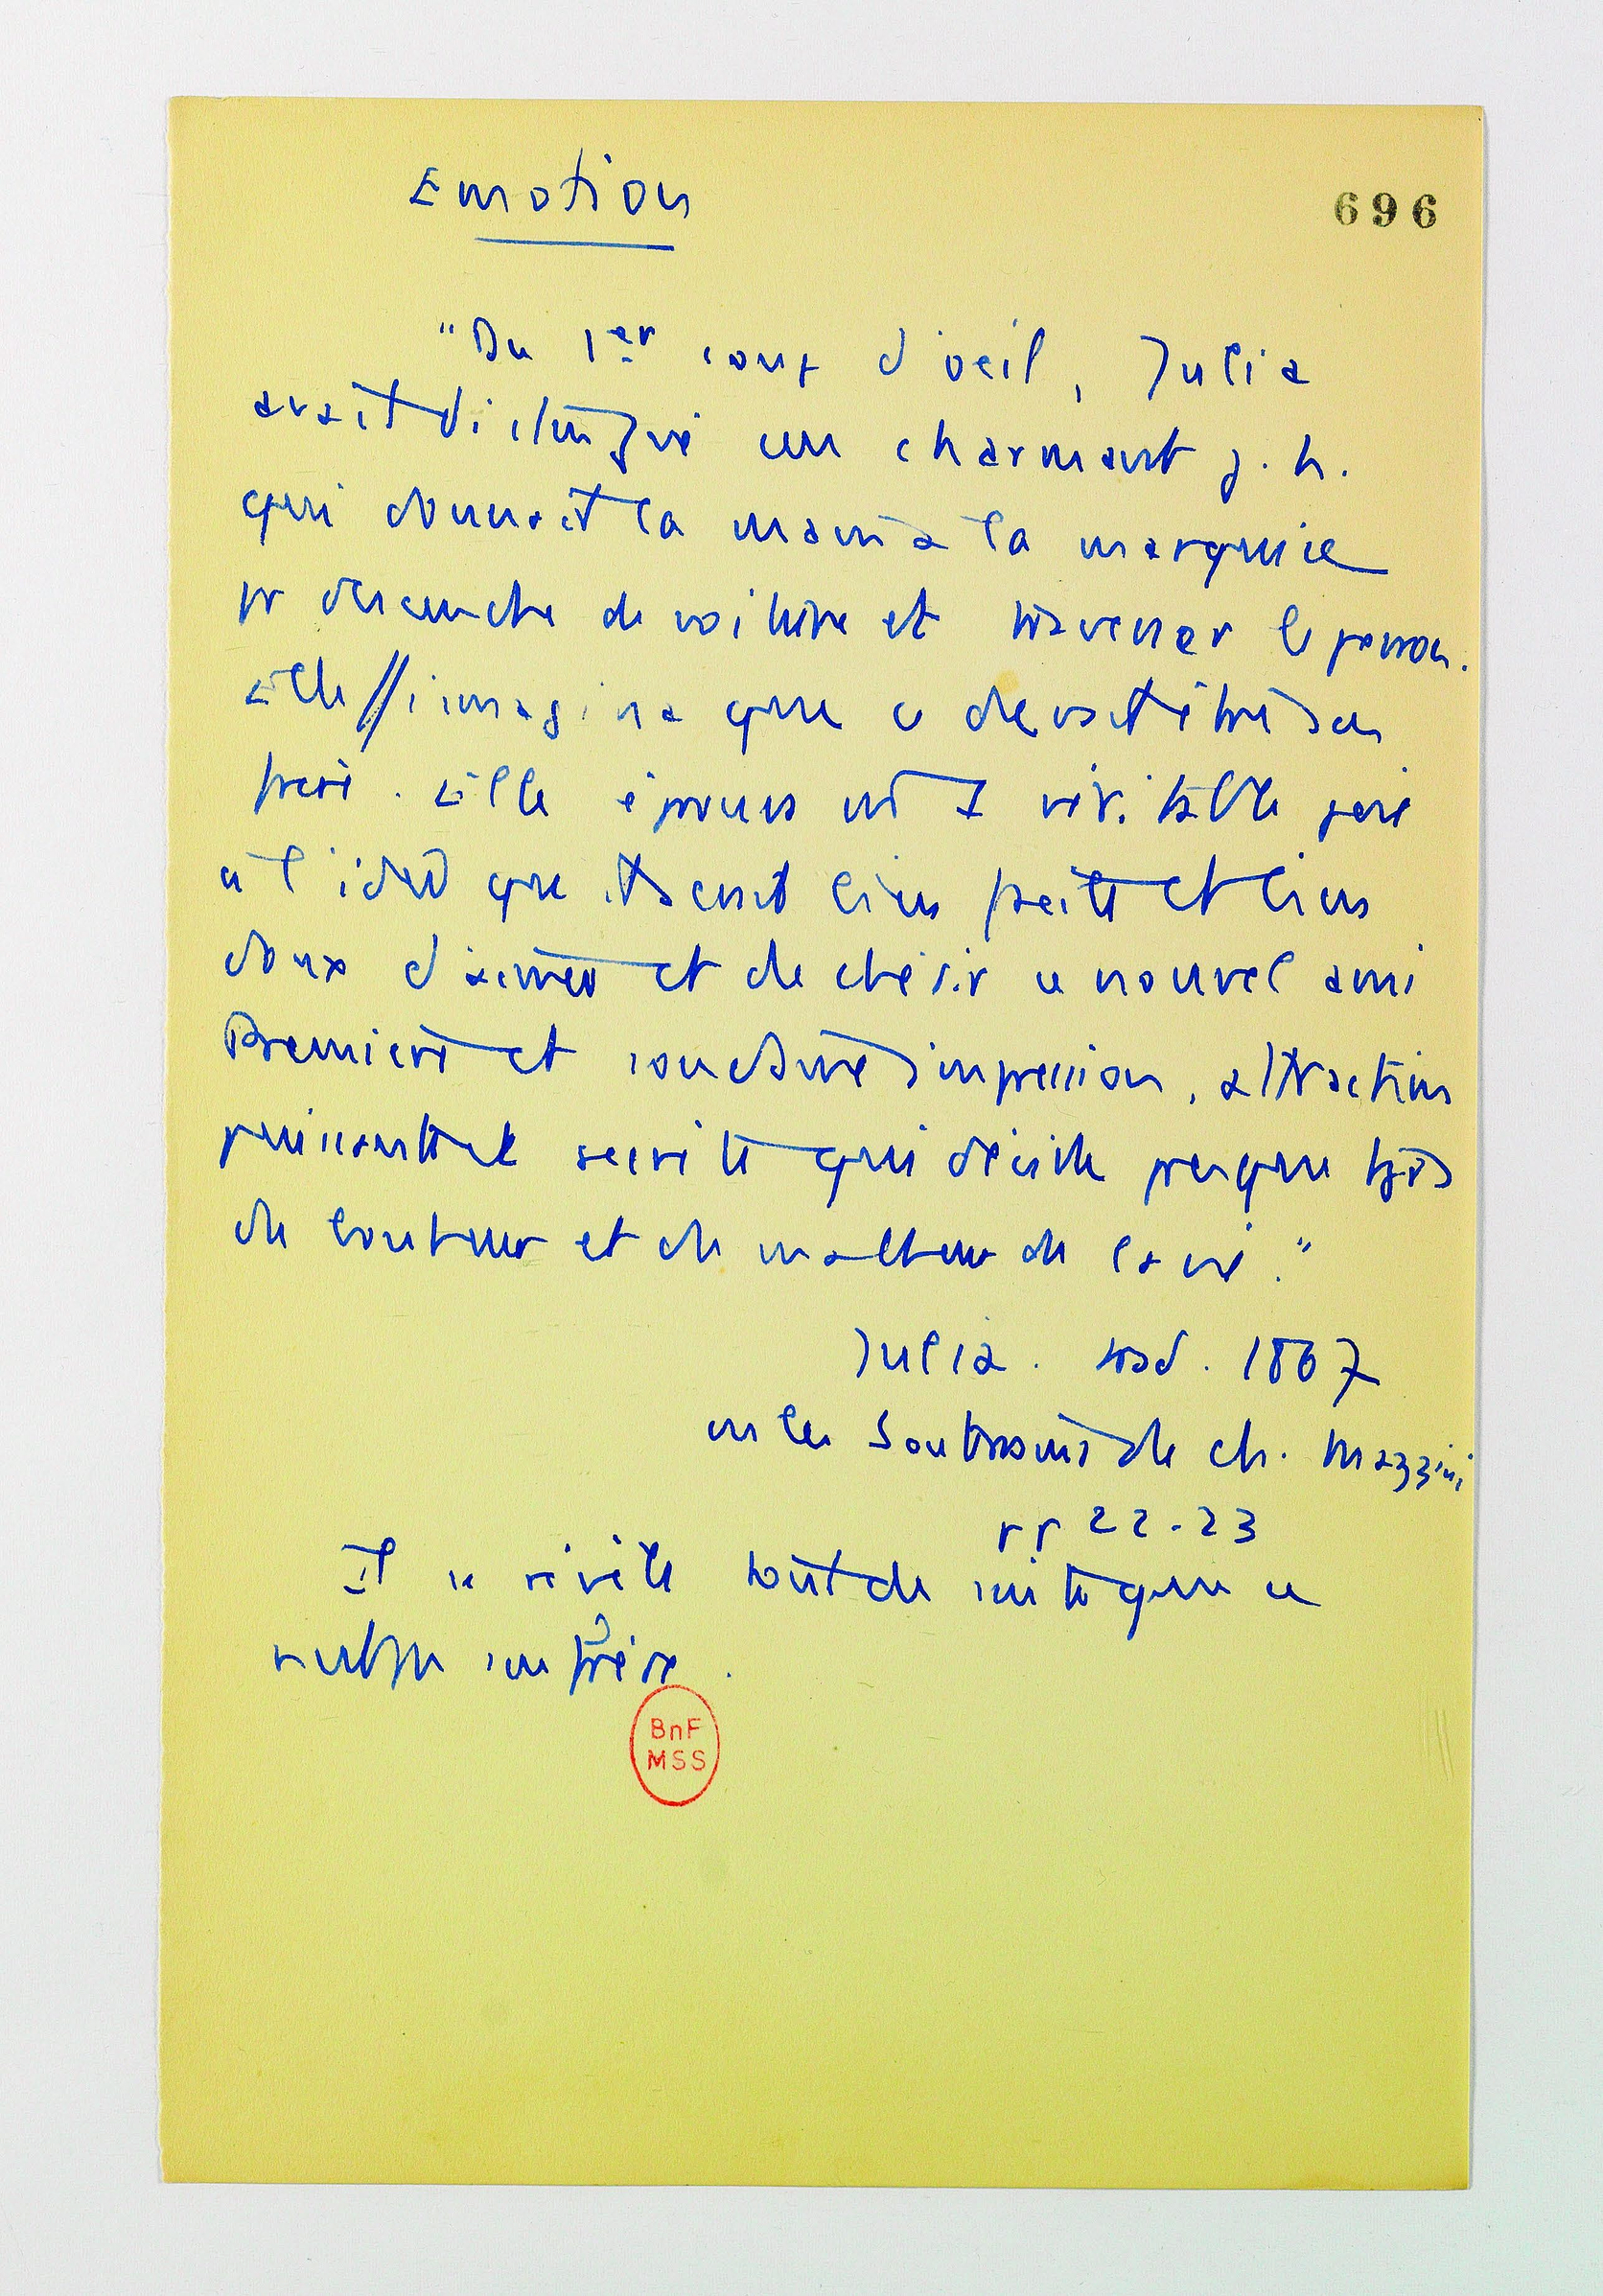 Emotion
696
"Du 1er coup d'oeil, Julia
avait distingué un charmant j. h.
qui donnait la main à la marquise
pr descendre de voiture et traverser le perron.
Elle s'imagina que ce devait être son
frère. Elle éprouva une véritable joie
à l'idée que ce serait bien facile et bien
doux d'aimer et de chérir ce nouvel ami
Première et soudaine impression, attraction
puissante et secrète qui décide presque tjrs
du bonheur et du malheur de la vie."
Julia. trad. 1867
in les Souterrains du ch. Mazzini
pp 22-23
Il se révèle tout de suite que ce
n'est pas son frère.
BnF
MSS